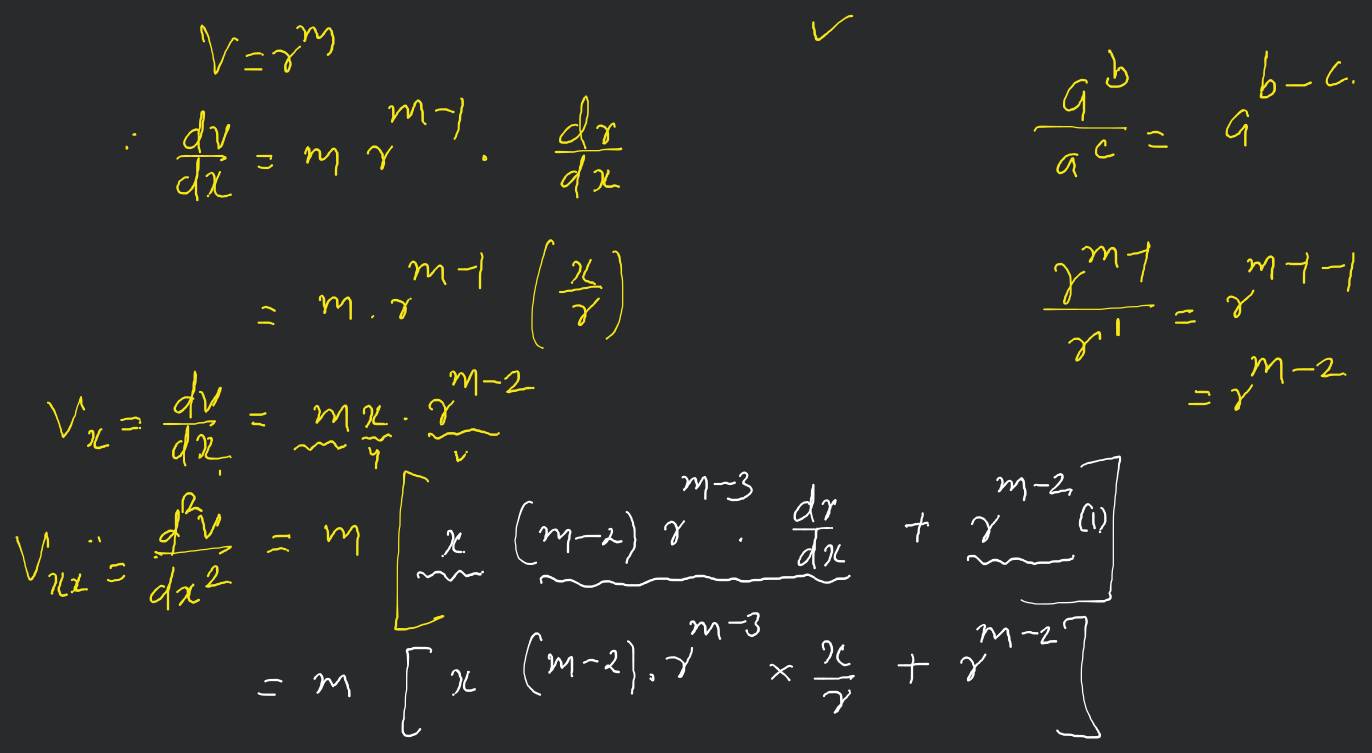 V = r^m
∴ dv/dx = m r^{m-1} . dr/dx
= m . r^{m-1} (x/r)
V_x = dv/dx = m x . r^{m-2}
u v
V_xx = d²v/dx² = m [ x (m-2) r^{m-3} . dr/dx + r^{m-2} (1) ]
= m [ x (m-2) . r^{m-3} × x/r + r^{m-2} ]
✓
a^b / a^c = a^{b-c.}
r^{m-1} / r^1 = r^{m-1-1}
= r^{m-2}